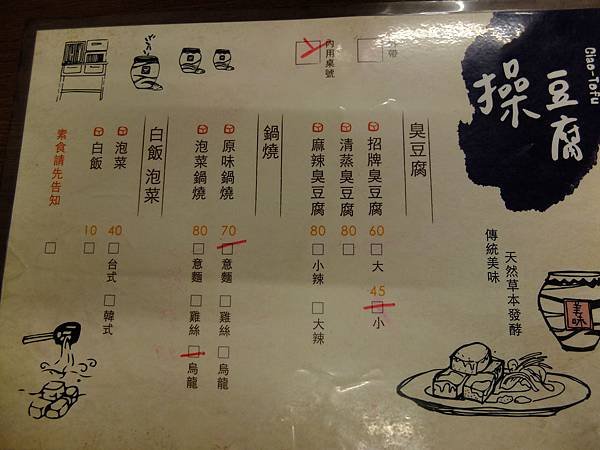 Ciao-Tofu
操豆腐
傳統美味
天然草本發酵
美味
外帶
內用桌號
臭豆腐
招牌臭豆腐 60 大 45 小
清蒸臭豆腐 80
麻辣臭豆腐 80 小辣 大辣
鍋燒
原味鍋燒 70 意麵 雞絲 烏龍
泡菜鍋燒 80 意麵 雞絲 烏龍
白飯 泡菜
泡菜 40 台式 韓式
白飯 10
素食請先告知